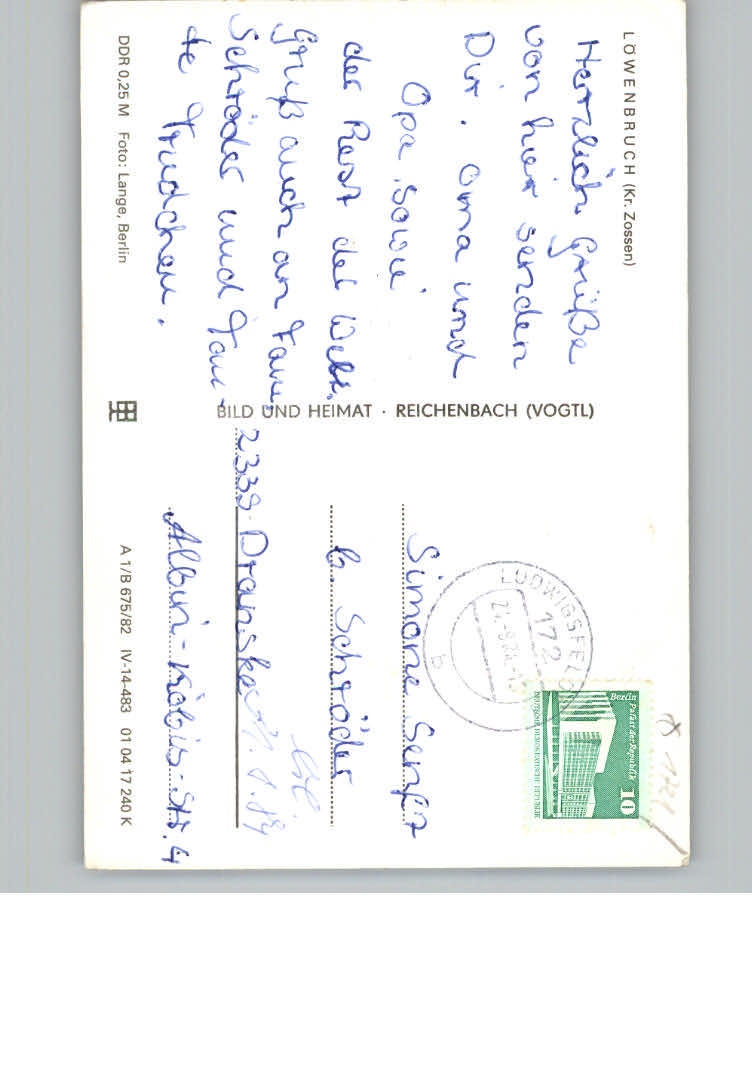 LÖWENBRUCH (Kr. Zossen)
Herzlich Grüße
von hier senden
Dir. Oma und
Opa. Sowie
der Rest der Welt.
Gruß auch an Fam.
Schröder und Tan-
te Trudchen.
DDR 0,25 M Foto: Lange, Berlin
BILD UND HEIMAT · REICHENBACH (VOGTL)
LUDWIGSFELDE
172
b
Berlin Palast der Republik
10
DEUTSCHE DEMOKRATISCHE REPUBLIK
Simone Senf
b. Schröder
2339 Dranske
Albin-Köbis-Str. 4
A 1/B 675/82 IV-14-483 01 04 17 240 K